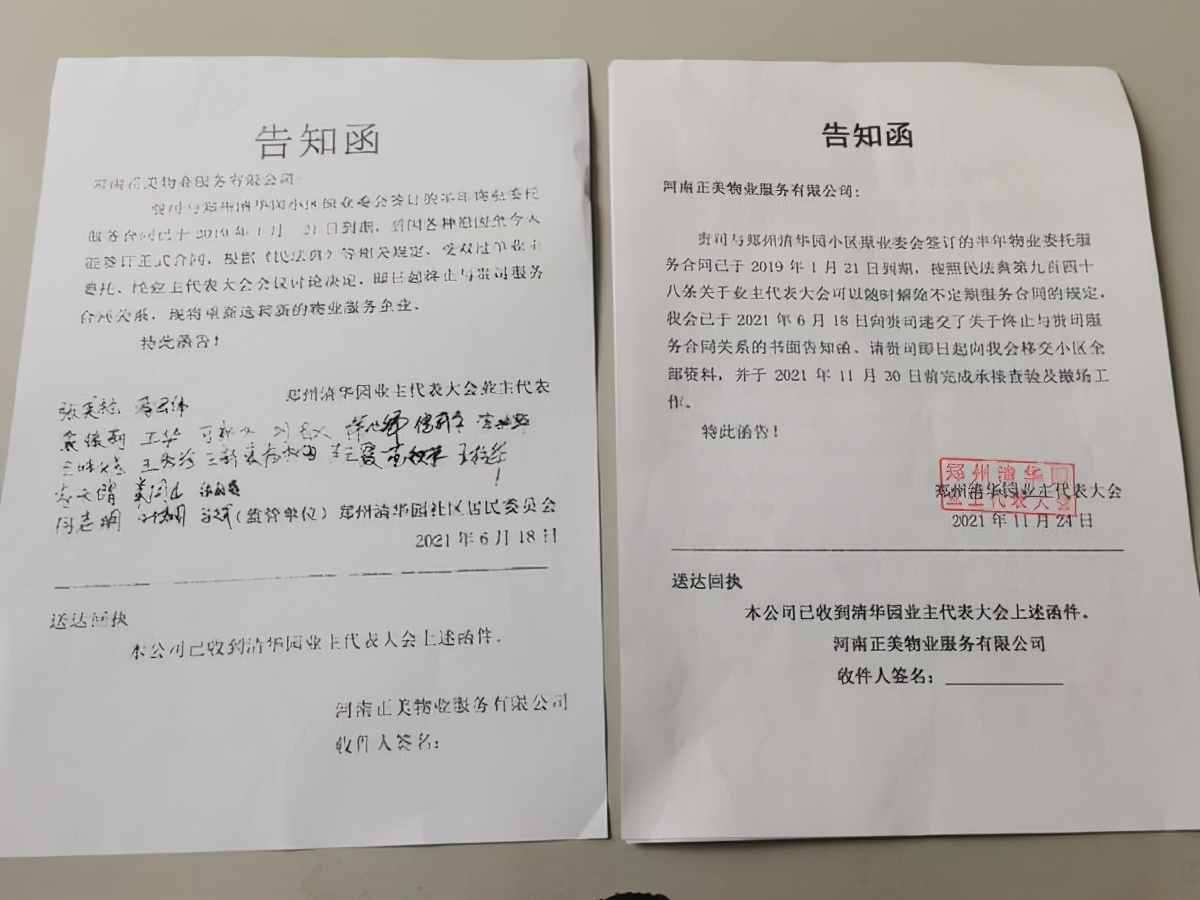 告知函
河南正美物业服务有限公司:
贵司与郑州清华园小区原业委会签订的半年物业委托
服务合同已于2019年1月21日到期,贵因各种原因至今未
能签订正式合同,根据《民法典》等相关规定,受双过半业主
委托,经业主代表大会会议讨论决定,即日起终止与贵司服务
合同关系,现将重新选聘新的物业服务企业。
特此函告!
郑州清华园业主代表大会业主代表
王华
(监管单位)郑州清华园社区居民委员会
2021年6月18日
送达回执
本公司已收到清华园业主代表大会上述函件。
河南正美物业服务有限公司
收件人签名:
告知函
河南正美物业服务有限公司:
贵司与郑州清华园小区原业委会签订的半年物业委托服
务合同已于2019年1月21日到期,按照民法典第九百四十
八条关于业主代表大会可以随时解除不定期服务合同的规定,
我会已于2021年6月18日向贵司递交了关于终止与贵司服
务合同关系的书面告知函、请贵司即日起向我会移交小区全
部资料,并于2021年11月30日前完成承接查验及撤场工
作。
特此函告!
郑州清华园
业主代表大会
郑州清华园业主代表大会
2021年11月24日
送达回执
本公司已收到清华园业主代表大会上述函件。
河南正美物业服务有限公司
收件人签名: